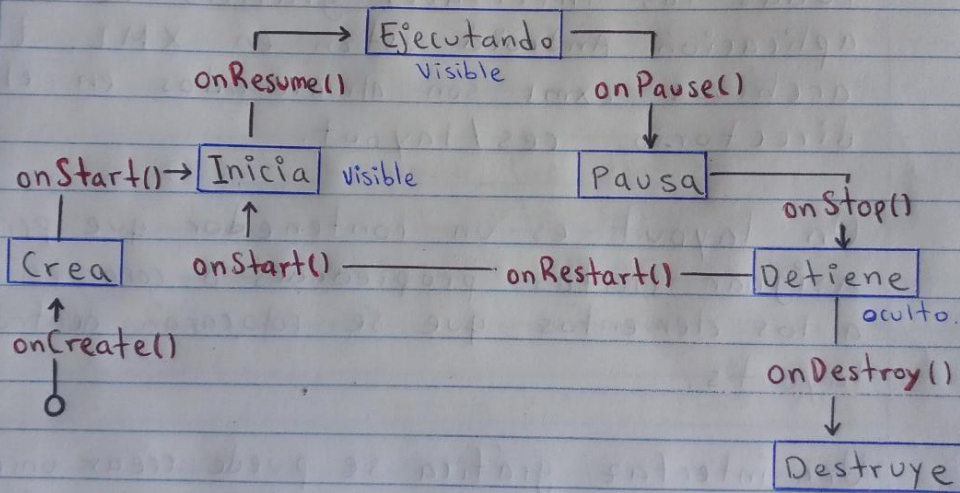 Ejecutando
Visible
onResume()
onPause()
onStart()
Inicia
Visible
Pausa
onStop()
Crea
onStart()
onRestart()
Detiene
oculto.
onCreate()
onDestroy()
Destruye